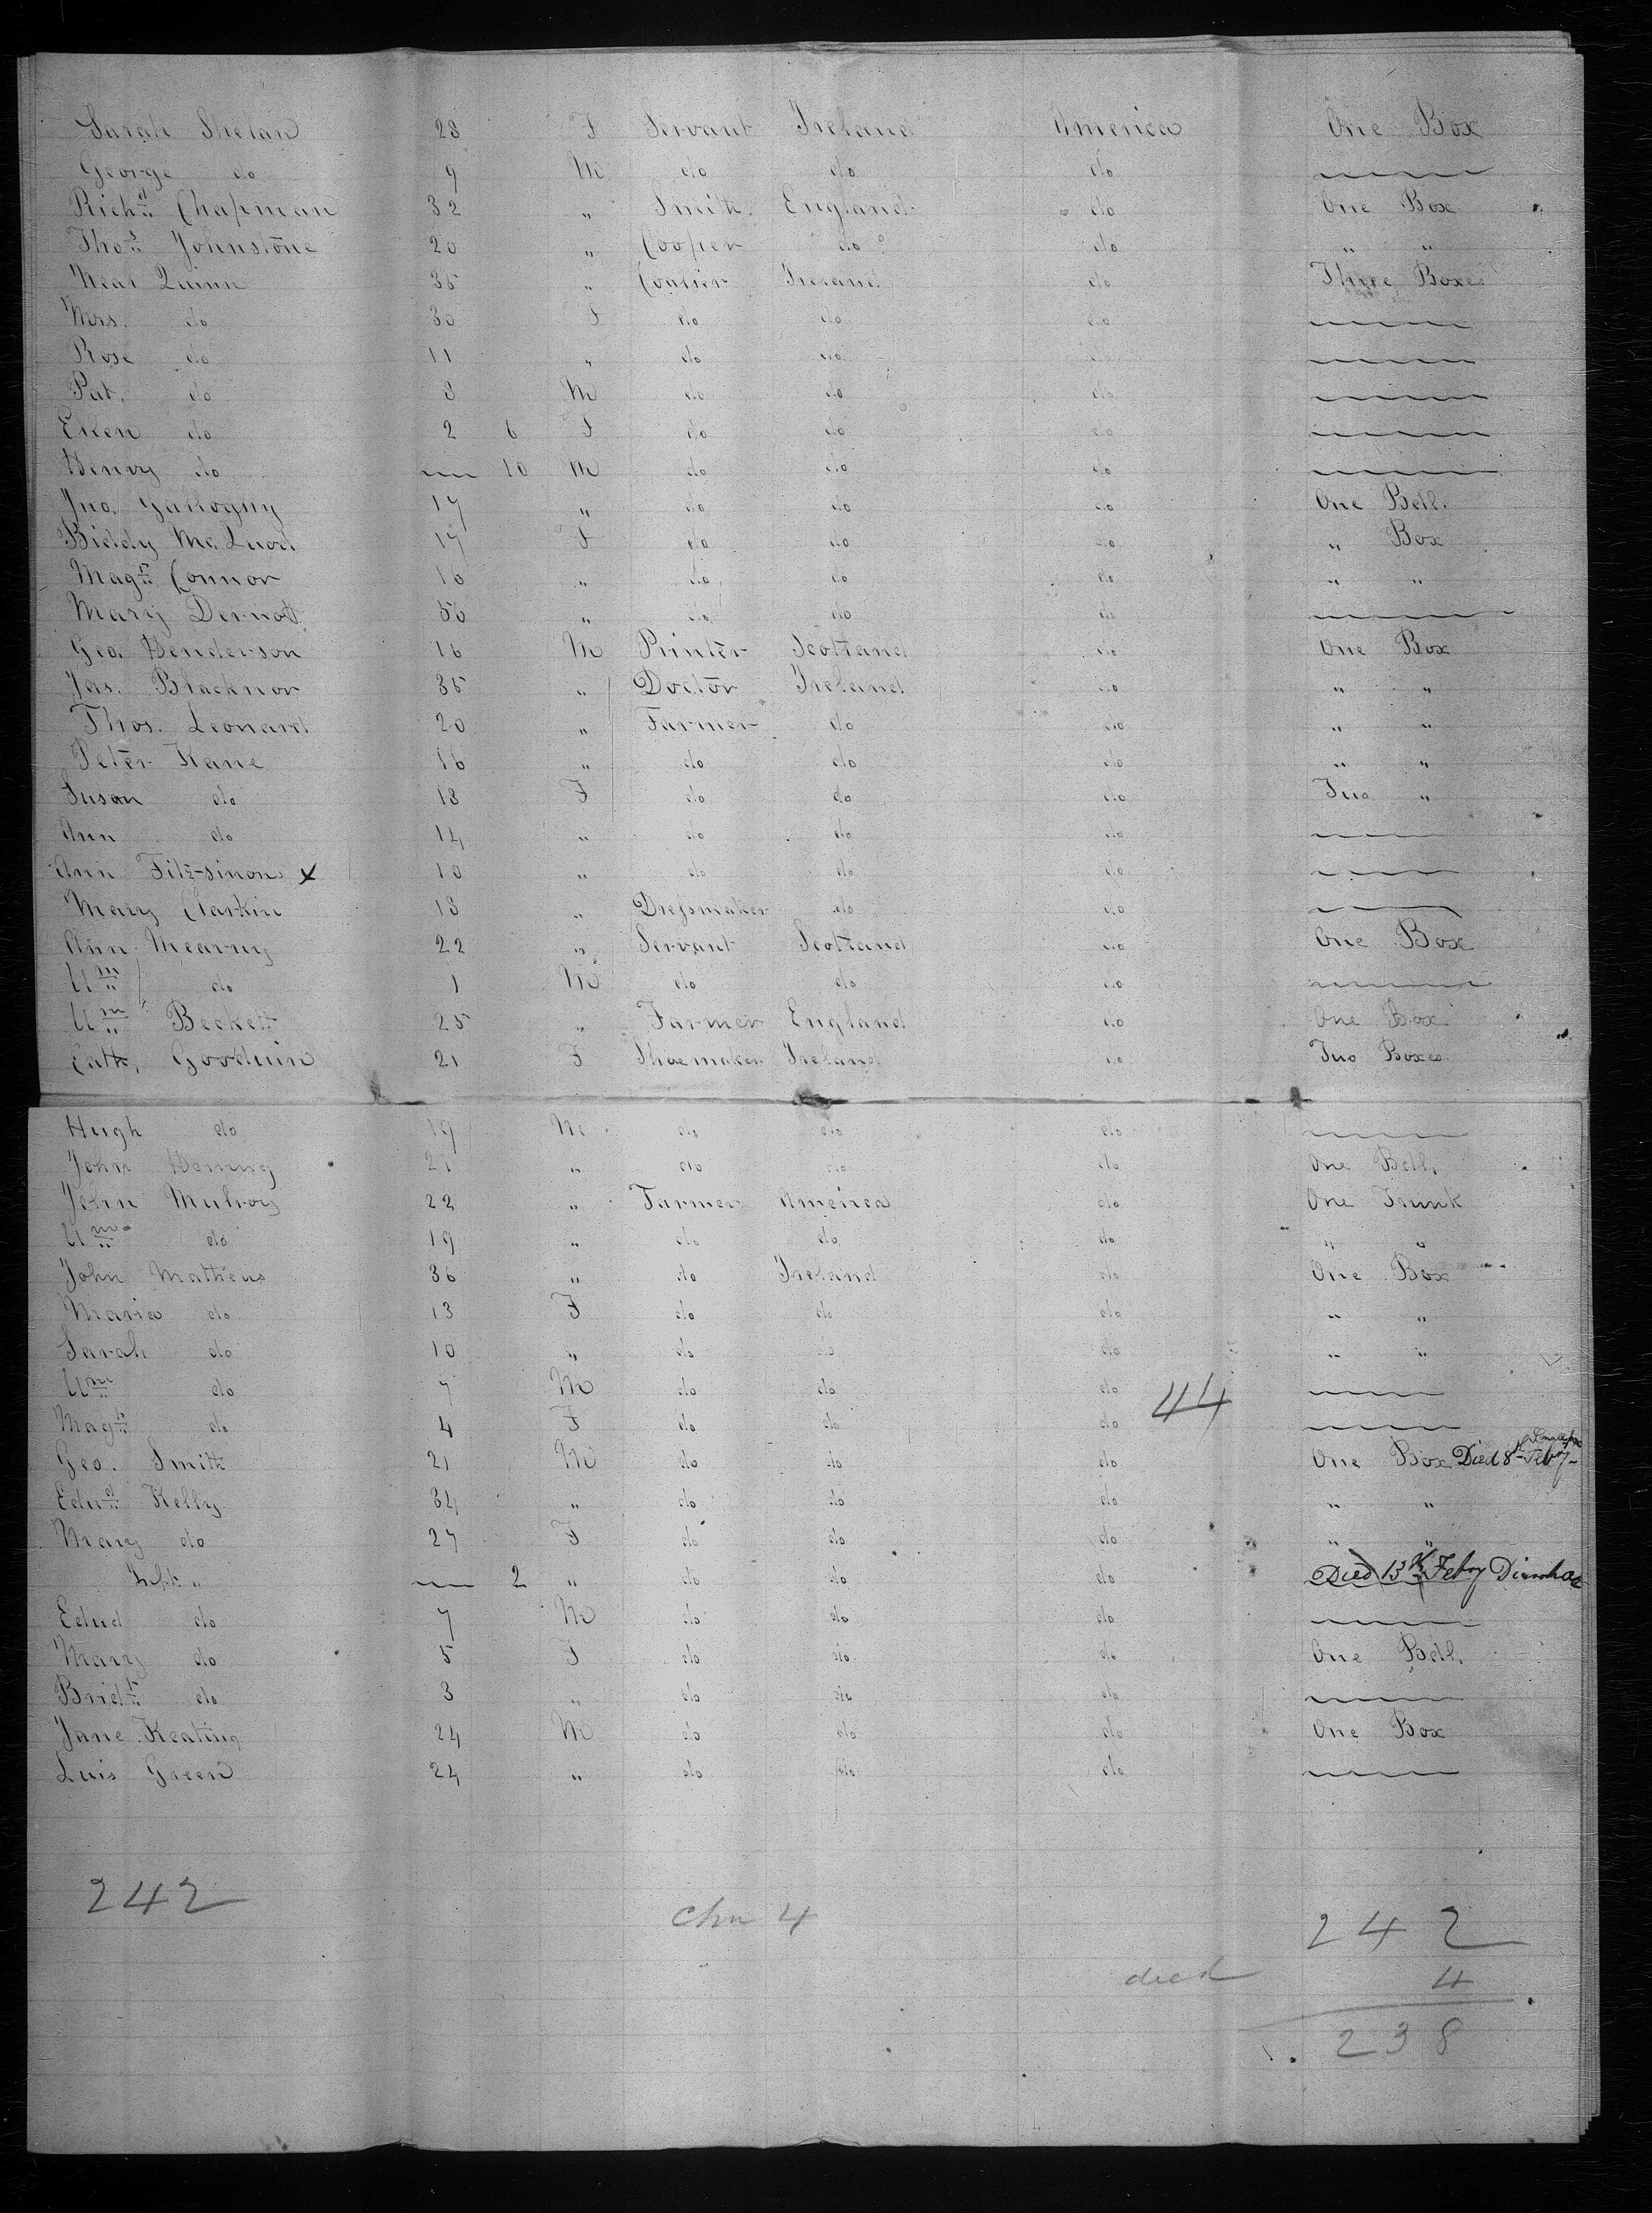 Sarah Shelan 28 F Servant Ireland America One Box
George do 9 M do do do
Richd Chapman 32 " Smith England do One Box
Thos Johnstone 20 " Cooper do do " "
Neal Quinn 35 " Coalier Ireland do Three Boxes
Mrs. do 30 F do do do
Rose do 11 " do do do
Pat. do 3 M do do do
Ellen do 2 6 F do do do
Henry do 10 M do do do
Jno. 17 " do do do One Bdl.
Biddy 17 F do do do " Box
Magt Connor 10 " do do do " "
Mary " do do do
Geo. Henderson 16 M Printer Scotland do One Box
Jas. Blacknor 35 " Doctor Ireland do " "
Thos. Leonard 20 " Farmer do do " "
Peter Kane 16 " do do do " "
Susan do 18 F do do do Two "
Ann do 14 " do do do
Ann Fitz-simon x 10 " do do do
Mary Clarkin 18 " Dressmaker do do
Ann Mearny 22 " Servant Scotland do One Box
Wm do 1 M do do do
Wm Beckett 25 " Farmer England do One Box
Cath. Goodwin 21 F Shoemaker Ireland do Two Boxes
Hugh do 19 M do do do
John " do do do One Bdl.
John Mulroy 22 " Farmer America do One Trunk
Wm do 19 " do do do " "
John Mathews 36 " do Ireland do One Box
Maria do 13 F do do do " "
Sarah do 10 " do do do " "
Wm do 7 M do do do 44
Magt do 4 F do do do
Geo. Smith 21 M do do do One Box Died 8th Feby Smallpox
Edwd Kelly 34 " do do do " "
Mary do 27 F do do do " "
Inft " 2 " do do do Died 13th Feby Diarrhoae
Edwd do 7 M do do do
Mary do 5 F do do do One Bdl.
Bridt do 3 " do do do
Jane Keating 24 M do do do One Box
Luis Green 24 " do do do
242
chn 4
242
died 4
238